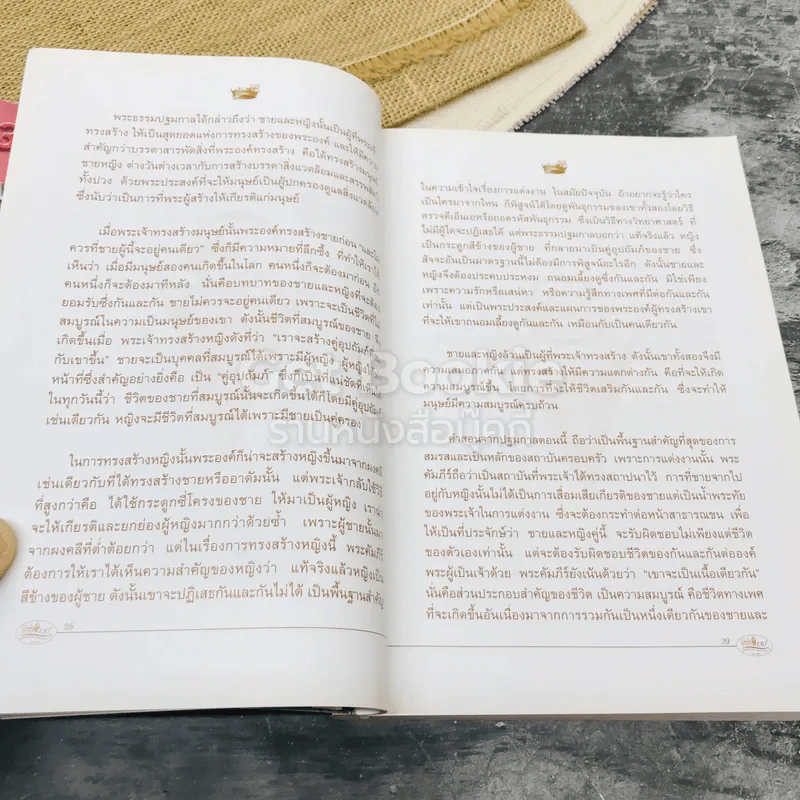 พระธรรมปฐมกาลได้กล่าวถึงว่า ชายและหญิงนั้นเป็นผู้ที่พระเจ้า
ทรงสร้าง ให้เป็นสุดยอดแห่งการทรงสร้างของพระองค์ และให้มีความ
สำคัญกว่าบรรดาสารพัดสิ่งที่พระองค์ทรงสร้าง คือได้ทรงสร้างมนุษย์
ชายหญิง ต่างวันต่างเวลากับการสร้างบรรดาสิ่งแวดล้อมและสรรพสัตว์
ทั้งปวง ด้วยพระประสงค์ที่จะให้มนุษย์เป็นผู้ปกครองดูแลสิ่งแวดล้อม
ซึ่งนับว่าเป็นการที่พระผู้สร้างให้เกียรติแก่มนุษย์
เมื่อพระเจ้าทรงสร้างมนุษย์นั้นพระองค์ทรงสร้างชายก่อน
ควรที่ชายผู้นี้จะอยู่คนเดียว" ซึ่งก็มีความหมายที่ลึกซึ้ง ที่ทำให้เราได้
เห็นว่า เมื่อมีมนุษย์สองคนเกิดขึ้นในโลก คนหนึ่งก็จะต้องมาก่อน อีก
คนหนึ่งก็จะต้องมาทีหลัง นั่นคือบทบาทของชายและหญิงที่จะต้อง
ยอมรับซึ่งกันและกัน ชายไม่ควรจะอยู่คนเดียว เพราะจะเป็นชีวิตที่ไม่
สมบูรณ์ในความเป็นมนุษย์ของเขา ดังนั้นชีวิตที่สมบูรณ์ของชาย
เกิดขึ้นเมื่อ พระเจ้าทรงสร้างหญิงดังที่ว่า "เราจะสร้างคู่อุปถัมภ์ที่
กับเขาขึ้น" ชายจะเป็นบุคคลที่สมบูรณ์ได้เพราะมีผู้หญิง ผู้หญิง
หน้าที่ซึ่งสำคัญอย่างยิ่งคือ เป็น "คู่อุปถัมภ์" ซึ่งก็เป็นที่แน่ชัดที่
ในทุกวันนี้ว่า ชีวิตของชายที่สมบูรณ์นั้นจะเกิดขึ้นได้ก็โดยมีคู่อุปถัมภ์
เช่นเดียวกัน หญิงจะมีชีวิตที่สมบูรณ์ได้เพราะมีชายเป็นคู่ครอง
ในการทรงสร้างหญิงนั้นพระองค์ก็น่าจะสร้างหญิงขึ้นมาจากผงคลี
เช่นเดียวกับที่ได้ทรงสร้างชายหรืออาดัมนั้น แต่พระเจ้ากลับใช้วิธี
ที่สูงกว่าคือ ได้ใช้กระดูกซี่โครงของชาย ให้มาเป็นผู้หญิง เราน่า
จะให้เกียรติและยกย่องผู้หญิงมากกว่าด้วยซ้ำ เพราะผู้ชายนั้นมา
จากผงคลีที่ต่ำต้อยกว่า แต่ในเรื่องการทรงสร้างหญิงนี้ พระคัมภีร์
ต้องการให้เราได้เห็นความสำคัญของหญิงว่า แท้จริงแล้วหญิงเป็น
สีข้างของผู้ชาย ดังนั้นเขาจะปฏิเสธกันและกันไม่ได้ เป็นพื้นฐานสำคัญ
28
ในความเข้าใจเรื่องการแต่งงาน ในสมัยปัจจุบัน ถ้าอยากจะรู้ว่าใคร
เป็นใครมาจากไหน ก็พิสูจน์ได้โดยดูพันธุกรรมของเขาทั้งสองโดยวิธี
ตรวจดีเอ็นเอหรือถอดรหัสพันธุกรรม ซึ่งเป็นวิธีทางวิทยาศาสตร์ ที่
ไม่มีผู้ใดจะปฏิเสธได้ แต่พระธรรมปฐมกาลบอกว่า แท้จริงแล้ว หญิง
เป็นกระดูกสีข้างของผู้ชาย ที่กลายมาเป็นคู่อุปถัมภ์ของชาย ซึ่ง
สัจจะอันเป็นมาตรฐานนี้ไม่ต้องมีการพิสูจน์อะไรอีก ดังนั้นชายและ
หญิงจึงต้องประคบประหงม ถนอมเลี้ยงดูซึ่งกันและกัน มิใช่เพียง
เพราะความรักหรือเสน่หา หรือความรู้สึกทางเพศที่มีต่อกันและกัน
เท่านั้น แต่เป็นพระประสงค์และแผนการของพระองค์ผู้ทรงสร้างเขา
ที่จะให้เขาถนอมเลี้ยงดูกันและกัน เหมือนกับเป็นคนเดียวกัน
ชายและหญิงล้วนเป็นผู้ที่พระเจ้าทรงสร้าง ดังนั้นเขาทั้งสองจึงมี
ความเสมอภาคกัน แต่ทรงสร้างให้มีความแตกต่างกัน คือที่จะให้เกิด
ความสมบูรณ์ขึ้น โดยการที่จะให้ชีวิตเสริมกันและกัน ซึ่งจะทำให้
มนุษย์มีความสมบูรณ์ครบถ้วน
คำสอนจากปฐมกาลตอนนี้ ถือว่าเป็นพื้นฐานสำคัญที่สุดของการ
สมรสและเป็นหลักของสถาบันครอบครัว เพราะการแต่งงานนั้น พระ
คัมภีร์ถือว่าเป็นสถาบันที่พระเจ้าได้ทรงสถาปนาไว้ การที่ชายจากไป
อยู่กับหญิงนั้นไม่ได้เป็นการเสื่อมเสียเกียรติของชายแต่เป็นน้ำพระทัย
ของพระเจ้าในการแต่งงาน ซึ่งจะต้องกระทำต่อหน้าสาธารณชน เพื่อ
ให้เป็นที่ประจักษ์ว่า ชายและหญิงคู่นี้ จะรับผิดชอบไม่เพียงแต่ชีวิต
ของตัวเองเท่านั้น แต่จะต้องรับผิดชอบชีวิตของกันและกันต่อองค์
พระผู้เป็นเจ้าด้วย พระคัมภีร์ยังเน้นด้วยว่า "เขาจะเป็นเนื้อเดียวกัน"
นั่นคือส่วนประกอบสำคัญของชีวิต เป็นความสมบูรณ์ คือชีวิตทางเพศ
ที่จะเกิดขึ้นอันเนื่องมาจากการรวมกันเป็นหนึ่งเดียวกันของชายและ
29
Get Bookie
ร้านหนังสือบุ๊คกี้